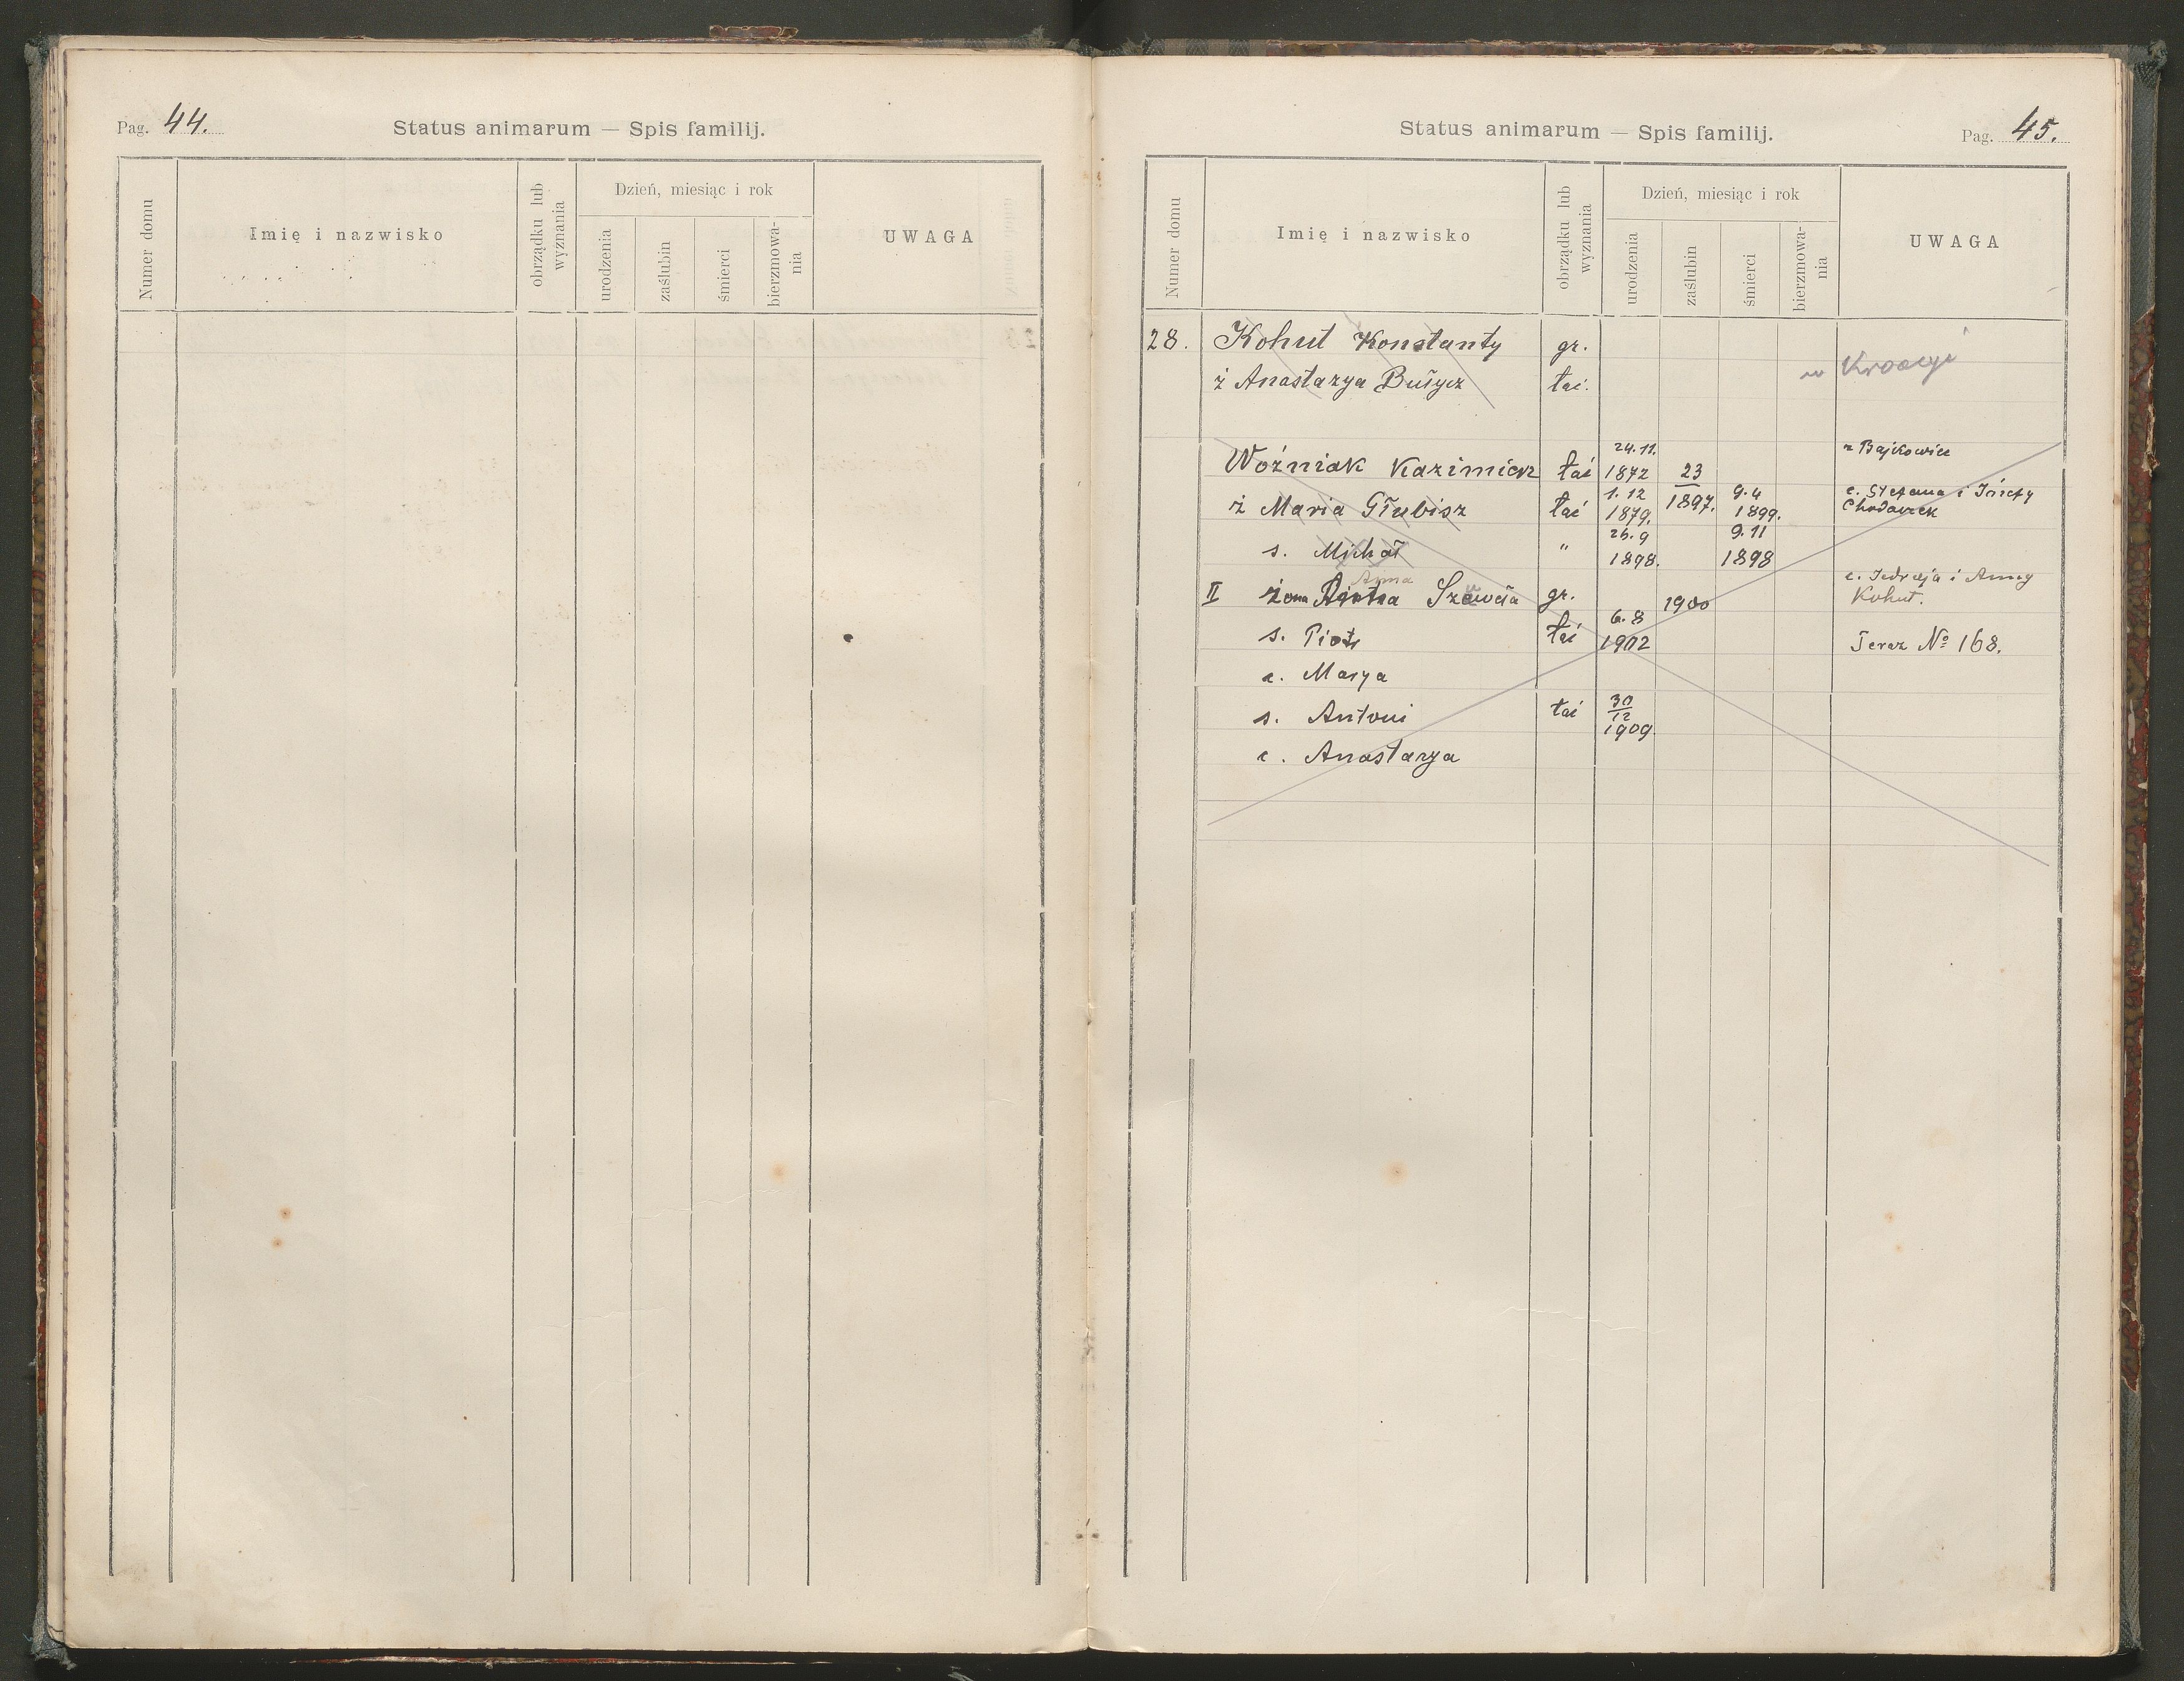 Pag. 44.
Status animarum — Spis familij.
Numer domu
Imię i nazwisko
obrządku lub wyznania
Dzień, miesiąc i rok
urodzenia
zaślubin
śmierci
bierzmowa-
nia
UWAGA
Status animarum — Spis familij.
Pag. 45.
Numer domu
Imię i nazwisko
obrządku lub wyznania
Dzień, miesiąc i rok
urodzenia
zaślubin
śmierci
bierzmowa-
nia
UWAGA
28. Kohut Konstanty gr.
w Kroacyi
ż Anastazya Bułycz łać.
24.11. z Bajkowiec
Woźniak Kazimierz łać 1872 23
1.12 9.4 c. Stefana i
ż Maria Głubisz łać 1879. 1897. 1899. Chodaczek
26.9 9.11
s. Michał " 1898. 1898
Anna c. Jędrzeja i Anny
II żona Szewcia gr. 1900 Kohut.
6.8
s. Piotr łać 1902 Teraz No 168.
c. Marya
s. Antoni łać 30
12
1909.
c. Anastazya